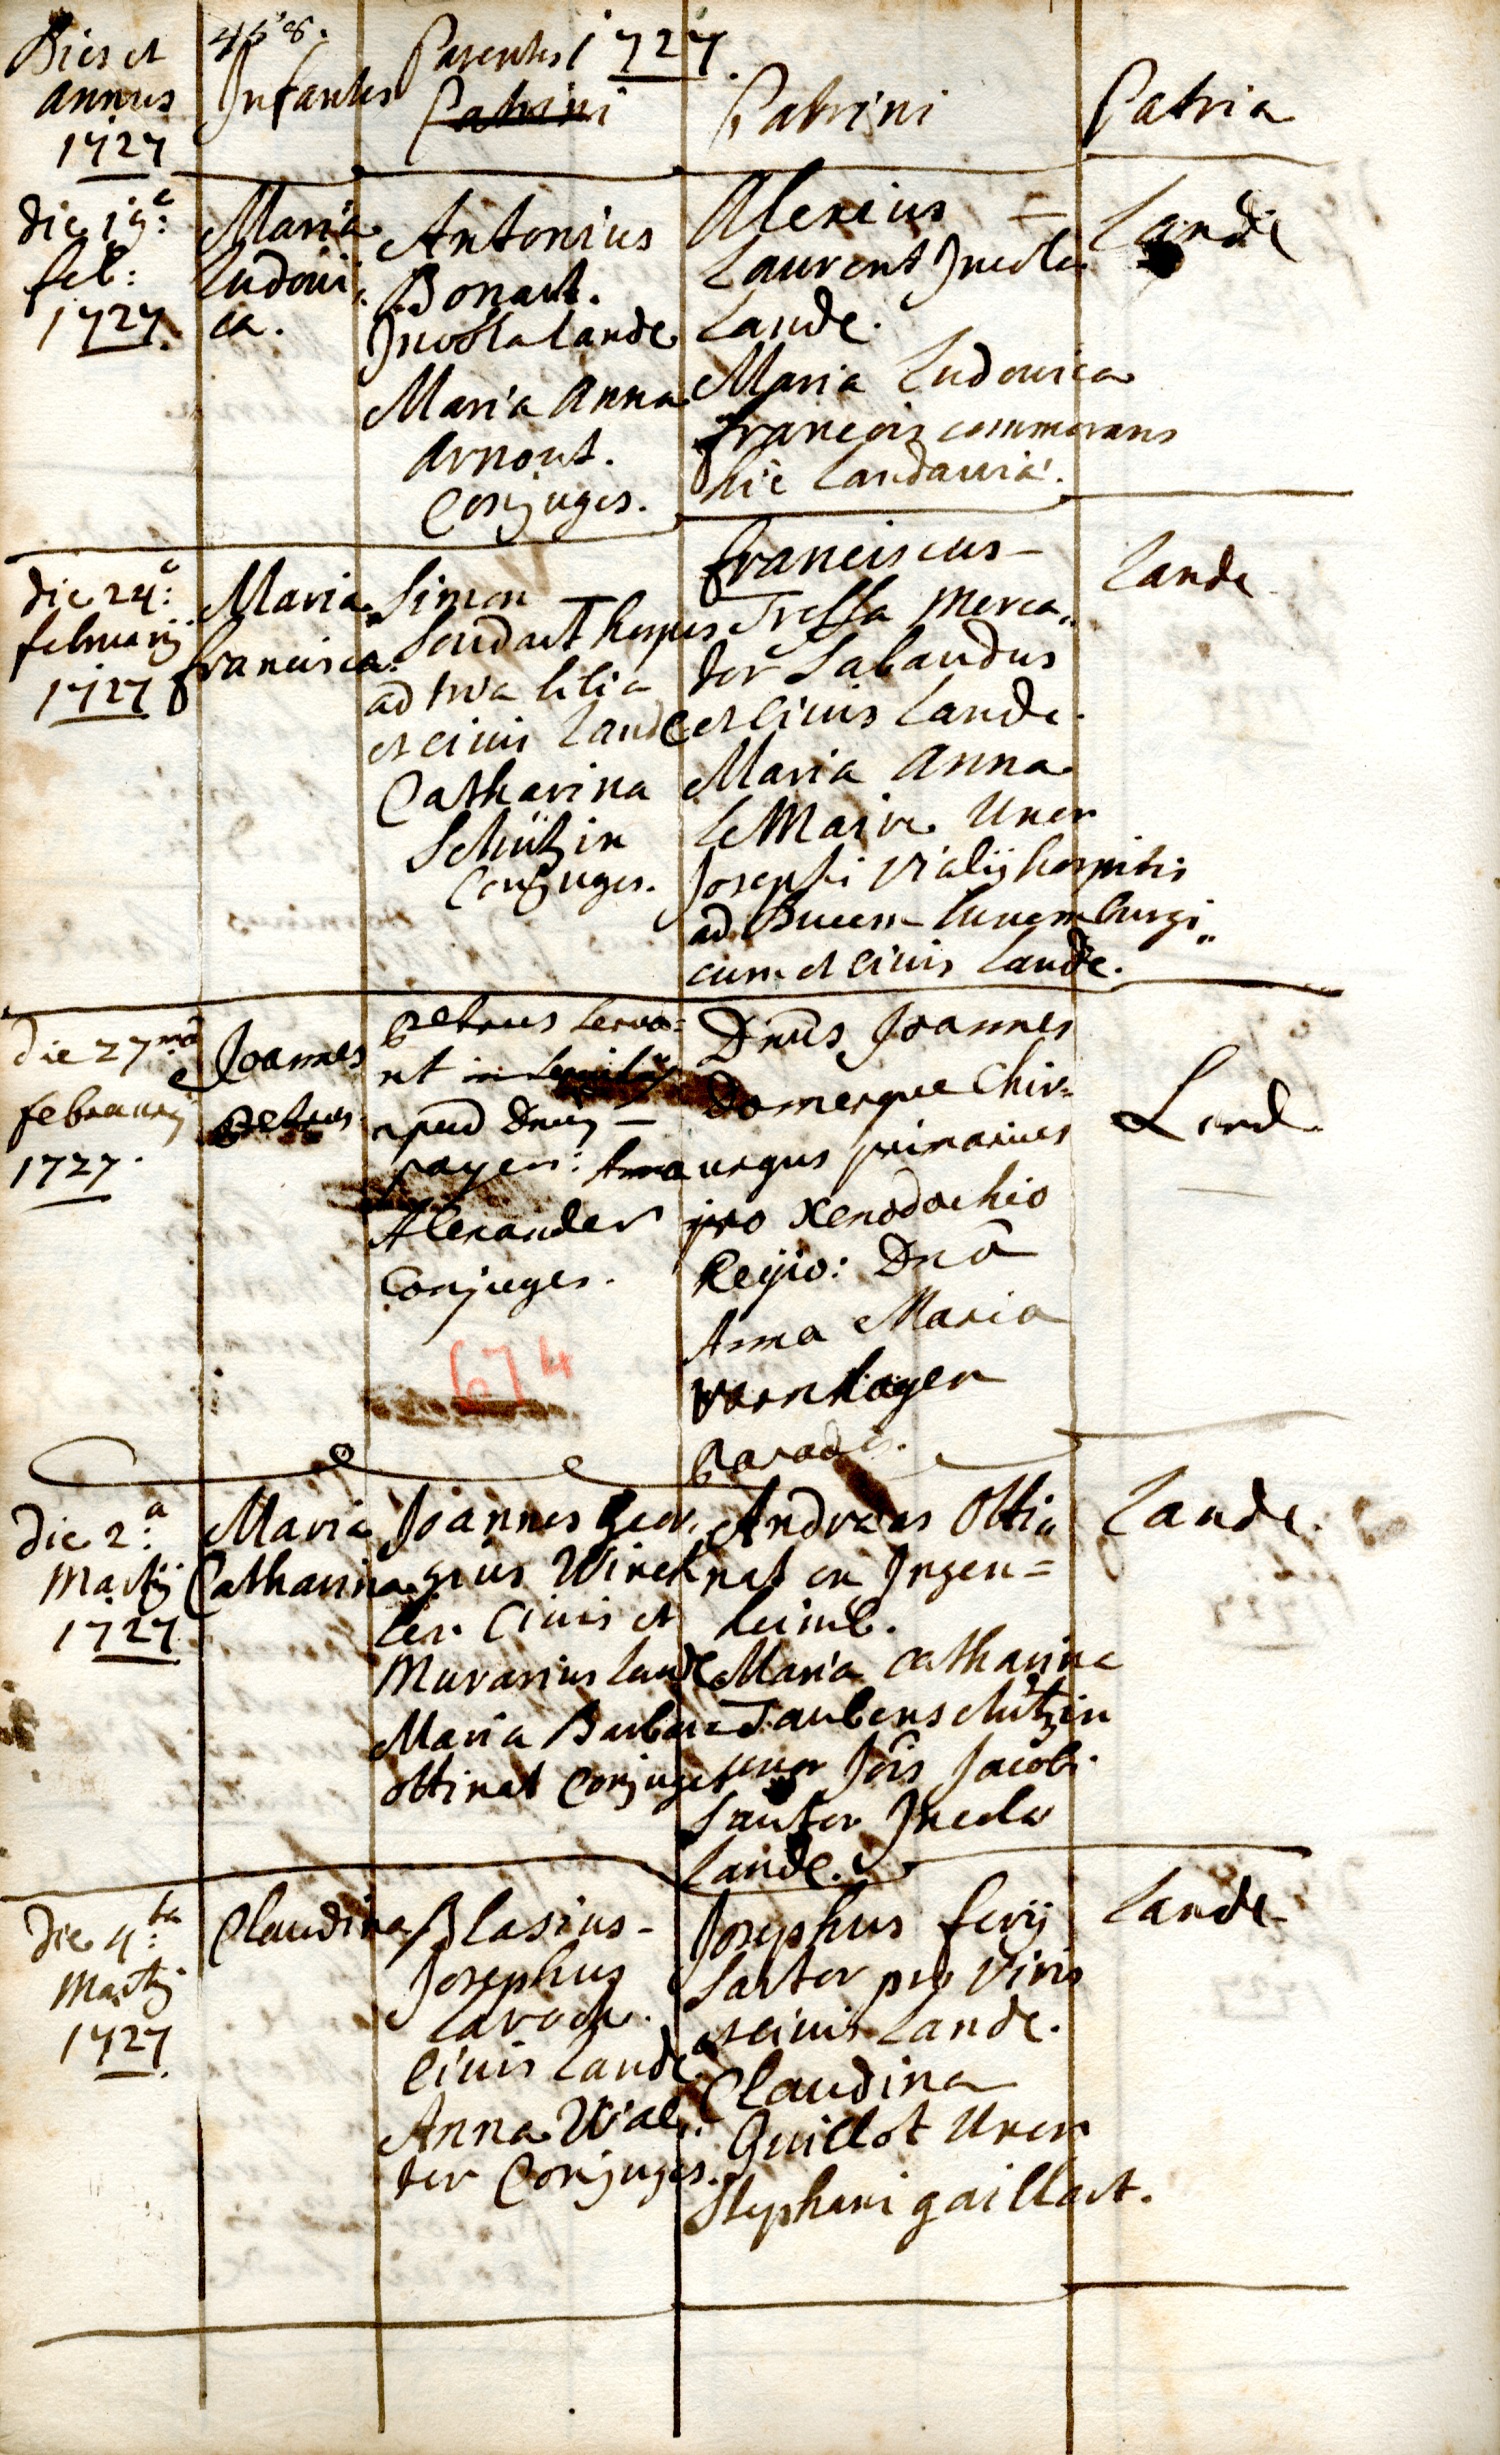 Dies et
annus
1727
Infantes
Parentes 1727.
Patrini
Patrini
Patria
die 19.a
feb:
1727.
Maria
Ludovi-
ca.
Antonius
Bonart.
Incola Landæ
Maria Anna
Arnout.
Conjuges.
Alexius –
Laurent Incola
Landæ.
Maria Ludovica
françois commorans
hic Landaviæ.
Landæ
die 24.a
februarij
1727
Maria
francisca.
Simon –
Soudart hospes
ad tria lilia
et civis Landæ
Catharina
Schützin
Conjuges.
franciscus –
Tressa Merca„
tor Sabaudus
et Civis Landæ.
Maria Anna
Le Maire Uxor
Josephi Vialij hospitis
ad Ducem Luxemburgi„
cum et Civis Landæ.
Landæ
die 27ma
februarij
1727.
Joannes
Petrus
Petrus Serva=
nt
apud Dnum –
payen: Anna
Alexander
Conjuges.
674
Dnus Joannes
Domergue Chir=
urgus primarius
pro Xenodochio
Regio: Dna
Anna Maria
Varnhagen
Paradis.
Land
die 2.a
Martij
1727
Maria
Catharina
Joannes Geor„
gius Winck
ler Civis et
Murarius Landæ
Maria Barbara
Ottinat Conjuges
Andreas Otti„
nat ex Ingen=
heimb.
Maria Catharina
Taubenschützin
uxor Jois Jacobi
Sautor Incola
Landæ.
Landæ.
Die 4.ta
Martij
1727.
Claudina
Blasius –
Josephus
Laroch.
Civis Landæ
Anna Wal„
ter Conjuges.
Josephus ferij
Sartor pro Viris
et civis Landæ.
Claudina
Guillot Uxor
Stephani gaillart.
Landæ